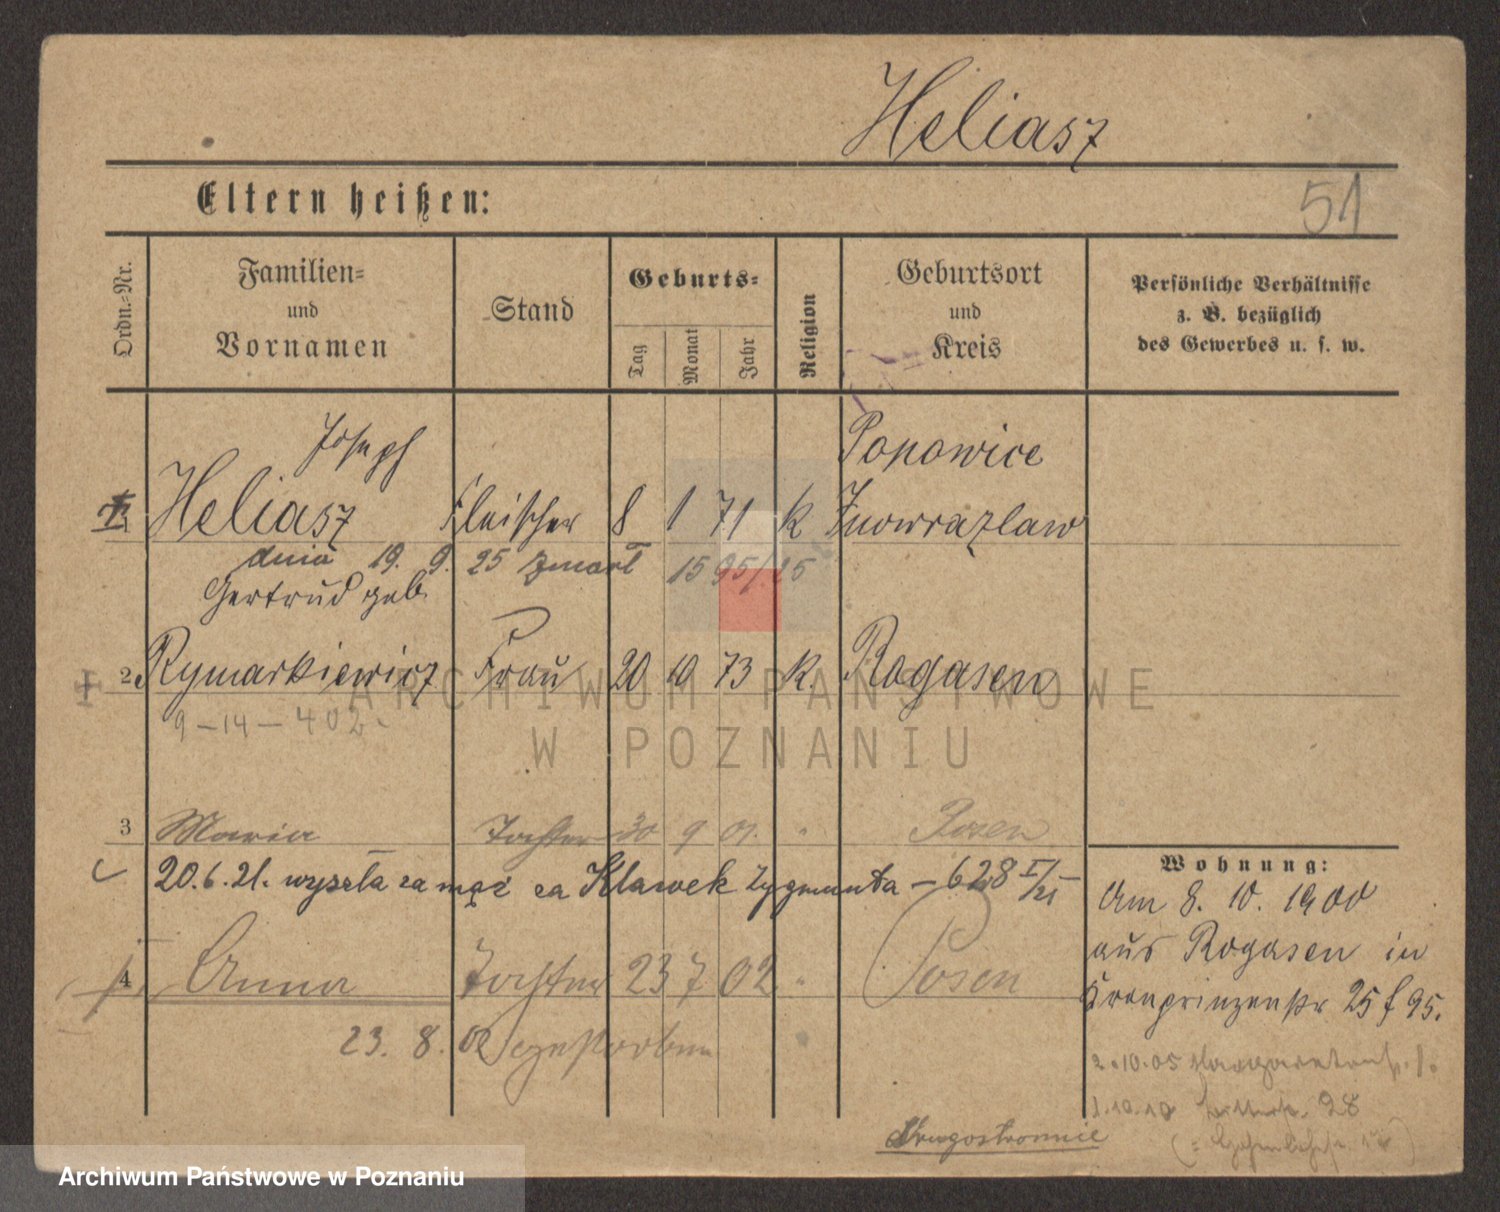 Heliasz
Eltern heißen:
51
Ordn.-Nr.
Familien-
und
Vornamen
Stand
Geburts-
Tag
Monat
Jahr
Religion
Geburtsort
und
Kreis
Persönliche Verhältnisse
z. B. bezüglich
des Gewerbes u. s. w.
Joseph
Popowice
1 Heliasz Fleischer 8 1 71 k Inowrazlaw
dnia 19. 9. 25 zmarł 1595/25
Gertrud geb.
2 Rymarkiewicz Frau 20 10 73 k. Rogasen
9-14-402-
3 Maria Tochter 30 9 01. " Posen
20.6.21. wyszła za mąż za Klawek Zygmunta - 628 VI/21
4 Anna Tochter 23 7 02 " Posen
23. 8. 02 gestorben
Wohnung:
Am 8. 10. 1900
aus Rogasen in
Kronprinzenstr 25 f 95.
2.10.05 Margaretenstr.
1.10.10 28
Drugostronnie
ARCHIWUM PAŃSTWOWE
W POZNANIU
Archiwum Państwowe w Poznaniu